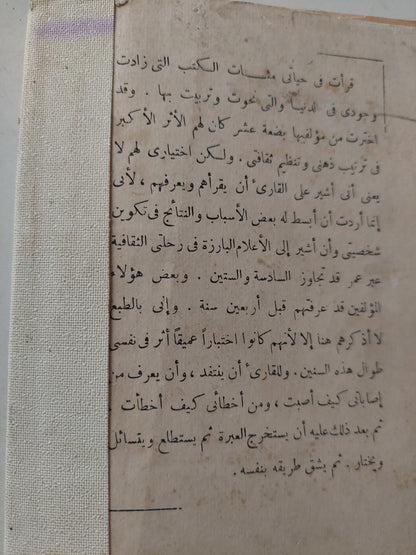 قرأت فى حياتى مئات الكتب التى زادت
وجودى فى الدنيا والتى نموت وتربيت بها . وقد
اخترت من مؤلفيها بضعة عشر كان لهم الأثر الأكبر
فى ترتيب ذهنى وتنظيم ثقافتى . ولكن اختيارى لهم لا
يعنى أنى أشير على القارئ أن يقرأهم ويعرفهم ، لأنى
إنما أردت أن أبسط له بعض الأسباب والنتائج فى تكوين
شخصيتى وأن أشير إلى الأعلام البارزة فى رحلتى الثقافية
عبر عمر قد تجاوز السادسة والستين . وبعض هؤلاء
المؤلفين قد عرفتهم قبل أربعين سنة . وإنى بالطبع
لا أذكرهم هنا إلا لأنهم كانوا اختباراً عميقاً أثر فى نفسى
طوال هذه السنين . وللقارئ أن ينتقد ، وأن يعرف من
إصاباتى كيف أصبت ، ومن أخطائى كيف أخطأت .
ثم بعد ذلك عليه أن يستخرج العبرة ثم يستطلع ويتساءل
ويختار . ثم يشق طريقه بنفسه .